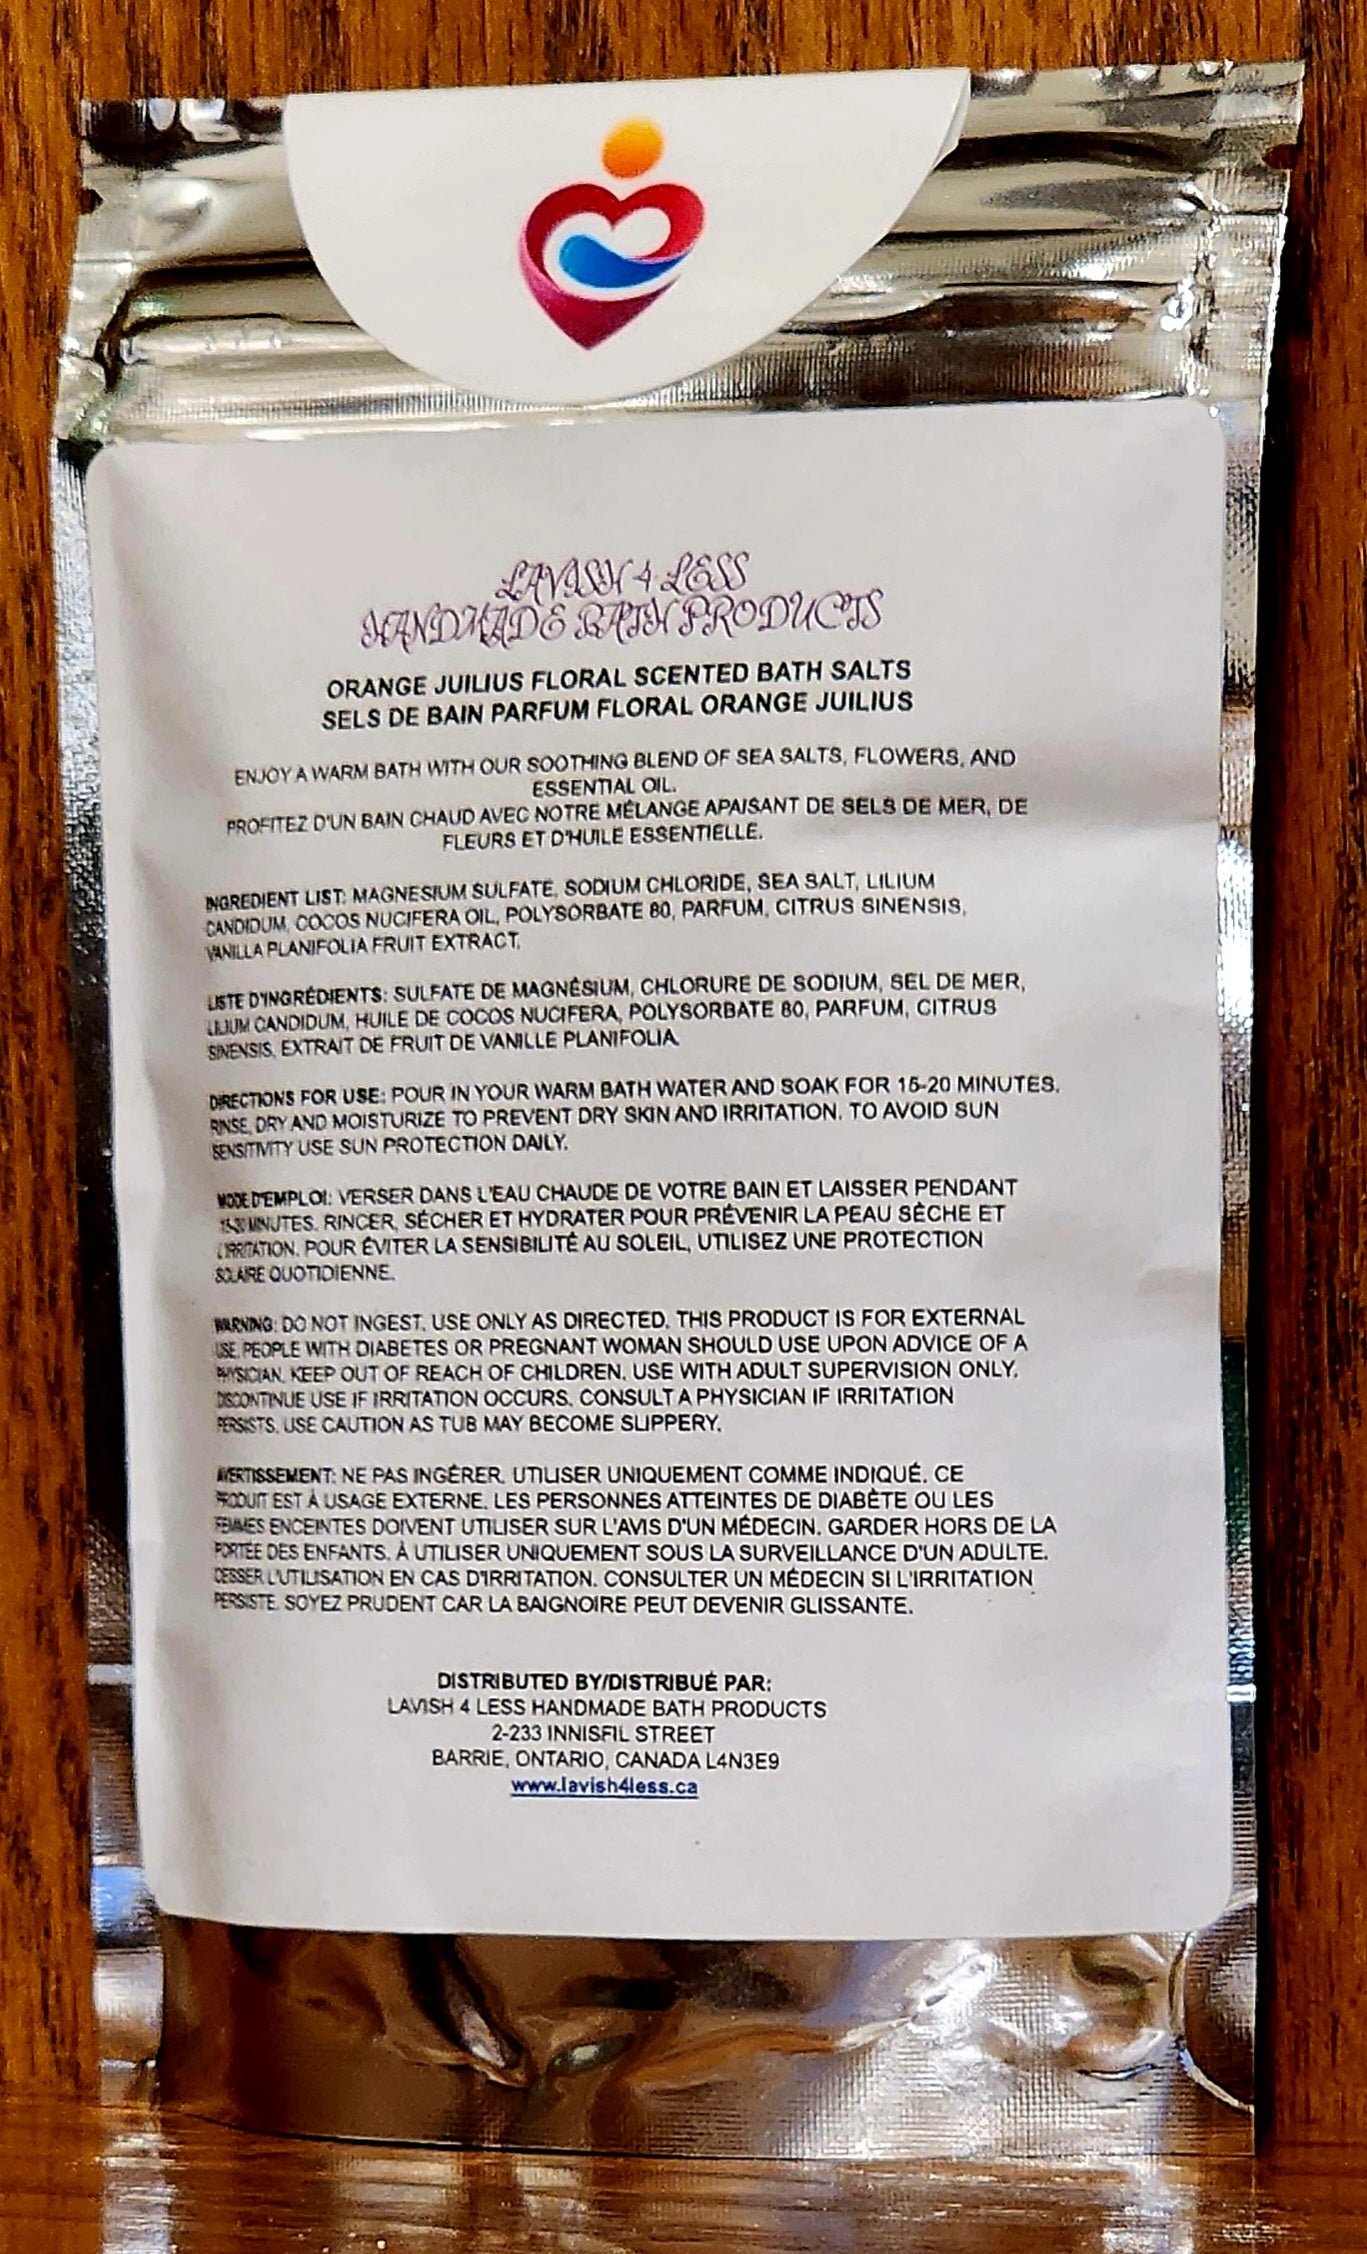 LAVISH 4 LESS
HANDMADE BATH PRODUCTS
ORANGE JUILIUS FLORAL SCENTED BATH SALTS
SELS DE BAIN PARFUM FLORAL ORANGE JUILIUS
ENJOY A WARM BATH WITH OUR SOOTHING BLEND OF SEA SALTS, FLOWERS, AND
ESSENTIAL OIL.
PROFITEZ D'UN BAIN CHAUD AVEC NOTRE MÉLANGE APAISANT DE SELS DE MER, DE
FLEURS ET D'HUILE ESSENTIELLE.
INGREDIENT LIST: MAGNESIUM SULFATE, SODIUM CHLORIDE, SEA SALT, LILIUM
CANDIDUM, COCOS NUCIFERA OIL, POLYSORBATE 80, PARFUM, CITRUS SINENSIS,
VANILLA PLANIFOLIA FRUIT EXTRACT.
LISTE D'INGRÉDIENTS: SULFATE DE MAGNÉSIUM, CHLORURE DE SODIUM, SEL DE MER,
LILIUM CANDIDUM, HUILE DE COCOS NUCIFERA, POLYSORBATE 80, PARFUM, CITRUS
SINENSIS, EXTRAIT DE FRUIT DE VANILLE PLANIFOLIA
DIRECTIONS FOR USE: POUR IN YOUR WARM BATH WATER AND SOAK FOR 15-20 MINUTES.
RINSE, DRY AND MOISTURIZE TO PREVENT DRY SKIN AND IRRITATION. TO AVOID SUN
SENSITIVITY USE SUN PROTECTION DAILY.
MODE D'EMPLOI: VERSER DANS L'EAU CHAUDE DE VOTRE BAIN ET LAISSER PENDANT
MINUTES. RINCER, SÉCHER ET HYDRATER POUR PRÉVENIR LA PEAU SÈCHE ET
L'IRRITATION. POUR ÉVITER LA SENSIBILITÉ AU SOLEIL, UTILISEZ UNE PROTECTION
SOLAIRE QUOTIDIENNE.
WARNING: DO NOT INGEST. USE ONLY AS DIRECTED. THIS PRODUCT IS FOR EXTERNAL
USE. PEOPLE WITH DIABETES OR PREGNANT WOMAN SHOULD USE UPON ADVICE OF A
PHYSICIAN. KEEP OUT OF REACH OF CHILDREN. USE WITH ADULT SUPERVISION ONLY.
DISCONTINUE USE IF IRRITATION OCCURS. CONSULT A PHYSICIAN IF IRRITATION
PERSISTS. USE CAUTION AS TUB MAY BECOME SLIPPERY.
AVERTISSEMENT: NE PAS INGÉRER. UTILISER UNIQUEMENT COMME INDIQUÉ. CE
PRODUIT EST À USAGE EXTERNE. LES PERSONNES ATTEINTES DE DIABÈTE OU LES
FEMMES ENCEINTES DOIVENT UTILISER SUR L'AVIS D'UN MÉDECIN. GARDER HORS DE LA
PORTÉE DES ENFANTS. À UTILISER UNIQUEMENT SOUS LA SURVEILLANCE D'UN ADULTE.
CESSER L'UTILISATION EN CAS D'IRRITATION. CONSULTER UN MÉDECIN SI L'IRRITATION
PERSISTE. SOYEZ PRUDENT CAR LA BAIGNOIRE PEUT DEVENIR GLISSANTE.
DISTRIBUTED BY/DISTRIBUÉ PAR:
LAVISH 4 LESS HANDMADE BATH PRODUCTS
2-233 INNISFIL STREET
BARRIE, ONTARIO, CANADA L4N3E9
www.lavish4less.ca